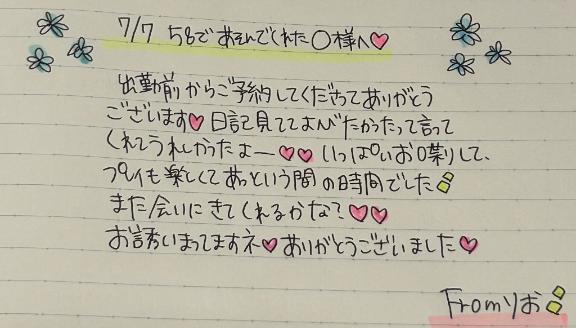 7/7 58であそんでくれた〇様へ♡
出勤前からご予約してくださってありがとう
ございます♡日記見ててよんびたかったって言って
くれてうれしかったよー♡♡いっぱいお喋りして、
プレイも楽しくてあっという間の時間でした
また会いにきてくれるかな?♡♡
お誘いまってますネ♡ありがとうございました♡
Fromりお